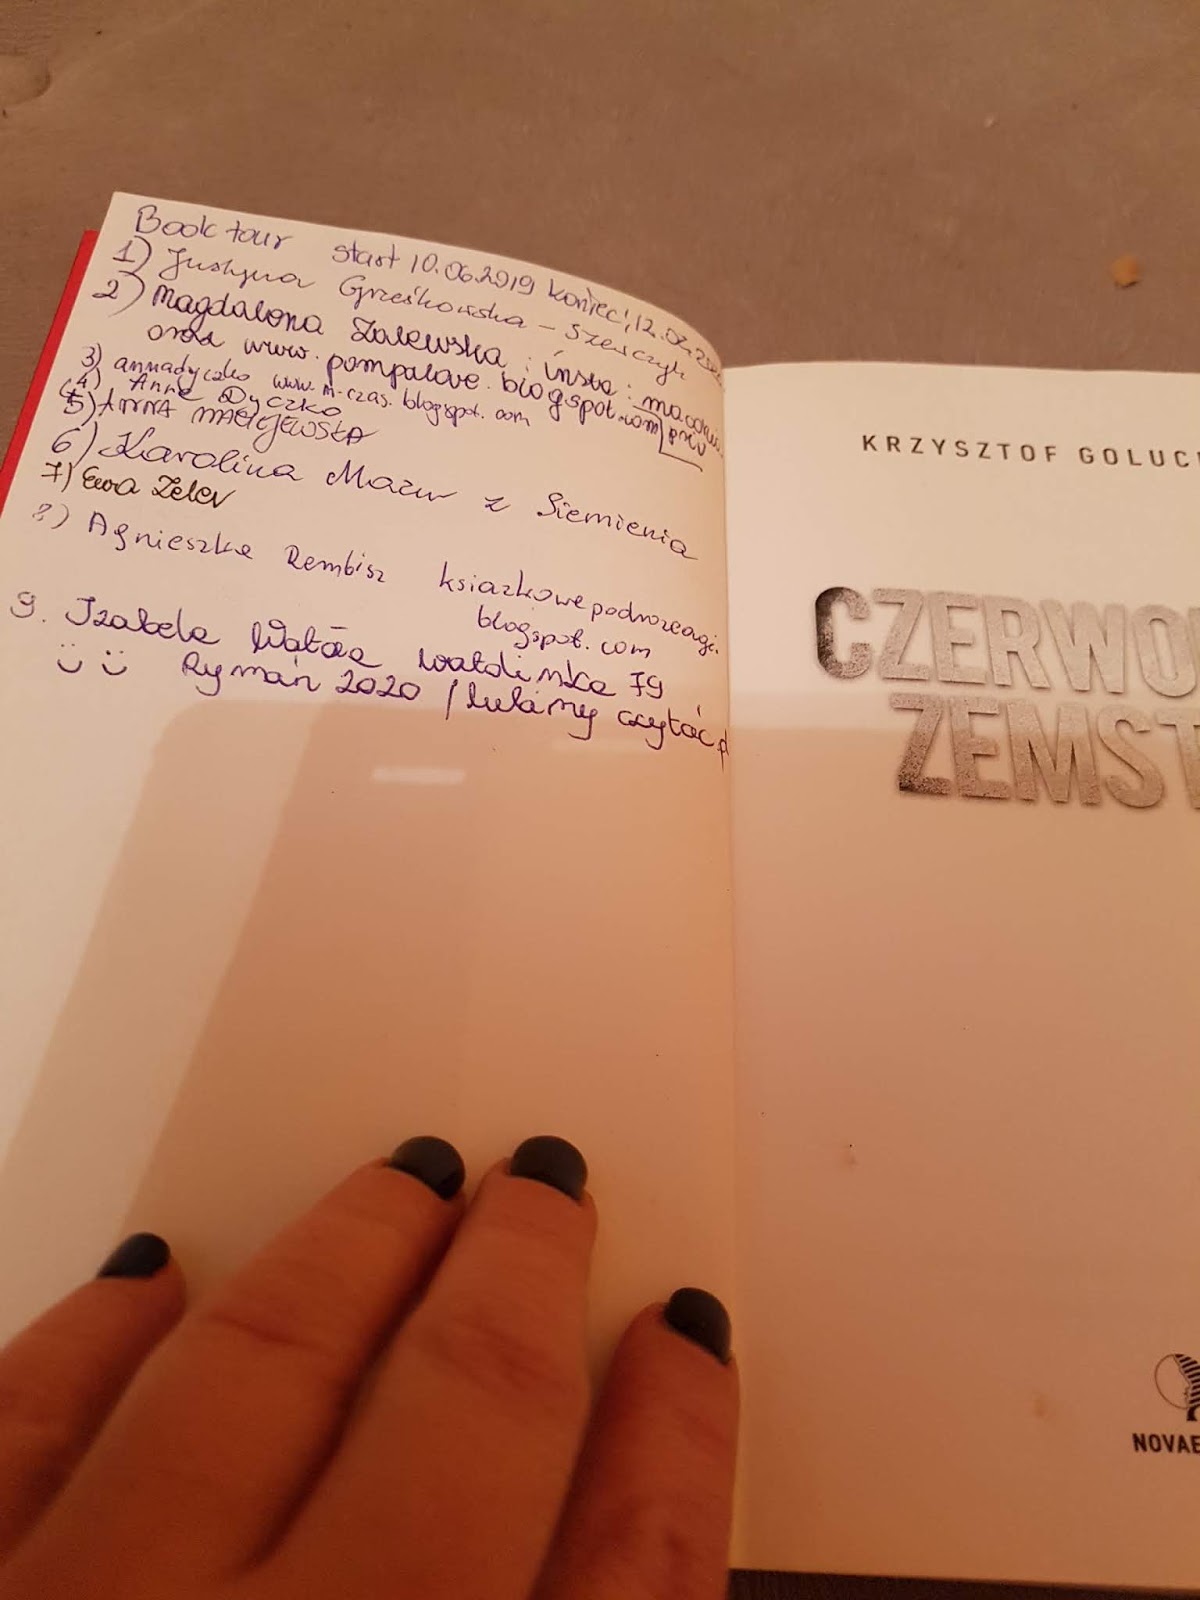 Book tour start 10.06.2019 koniec; 12.02.
1) Justyna Grześkowska - Szewczyk
2) Magdalena Zalewska: insta:
oraz www.pompalove.blogspot.com
3) annadyczko www.m-czas.blogspot.com
4) Anna Dyczko
5) ANNA MACIEJEWSKA
6) Karolina Mazur z Siemienia
7) Ewa Zelev
8) Agnieszka Rembisz ksiazkowepodrozeagi.
blogspot.com
9. Izabela Wątor
Rymań 2020 / lubimy czytać.p
KRZYSZTOF GOLUC
CZERWO
ZEMST
NOVAE